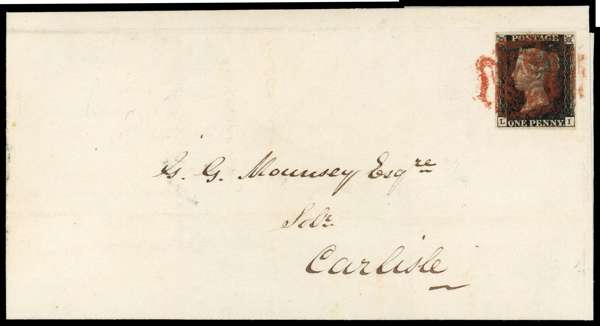 POSTAGE
L ONE PENNY. I
G. Mounsey Esqre
Solr
Carlisle